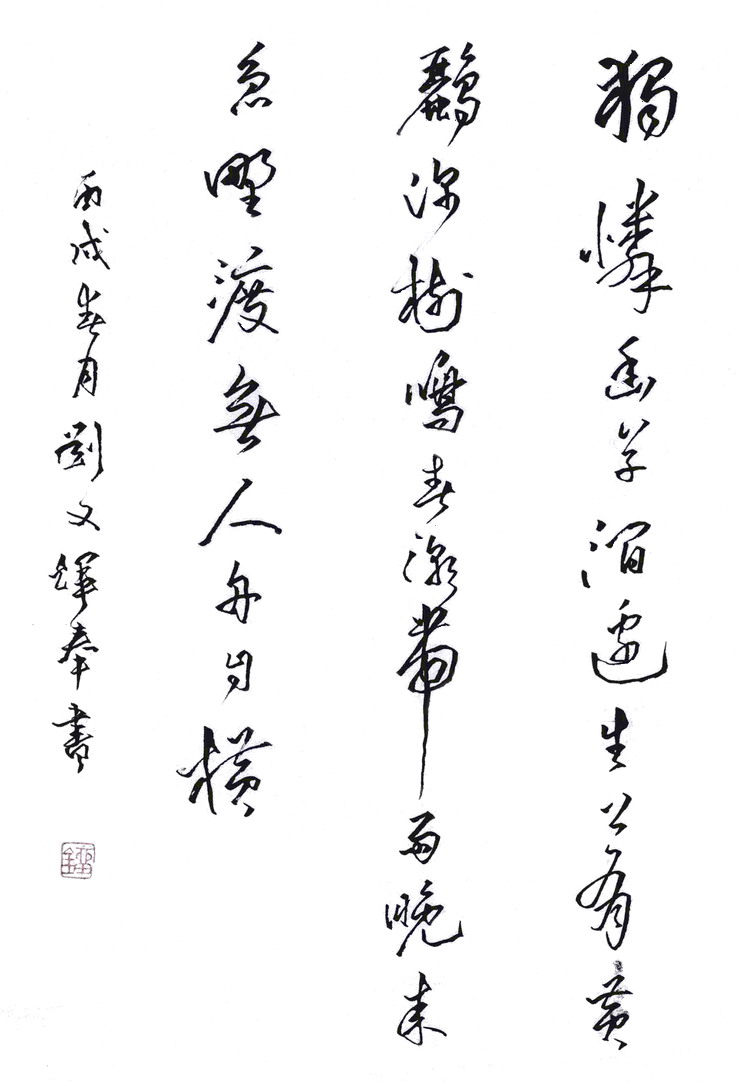 獨憐幽草澗邊生上有黃
鸝深樹鳴春潮帶雨晚來
急野渡無人舟自橫
丙戌春月劉文輝奉書